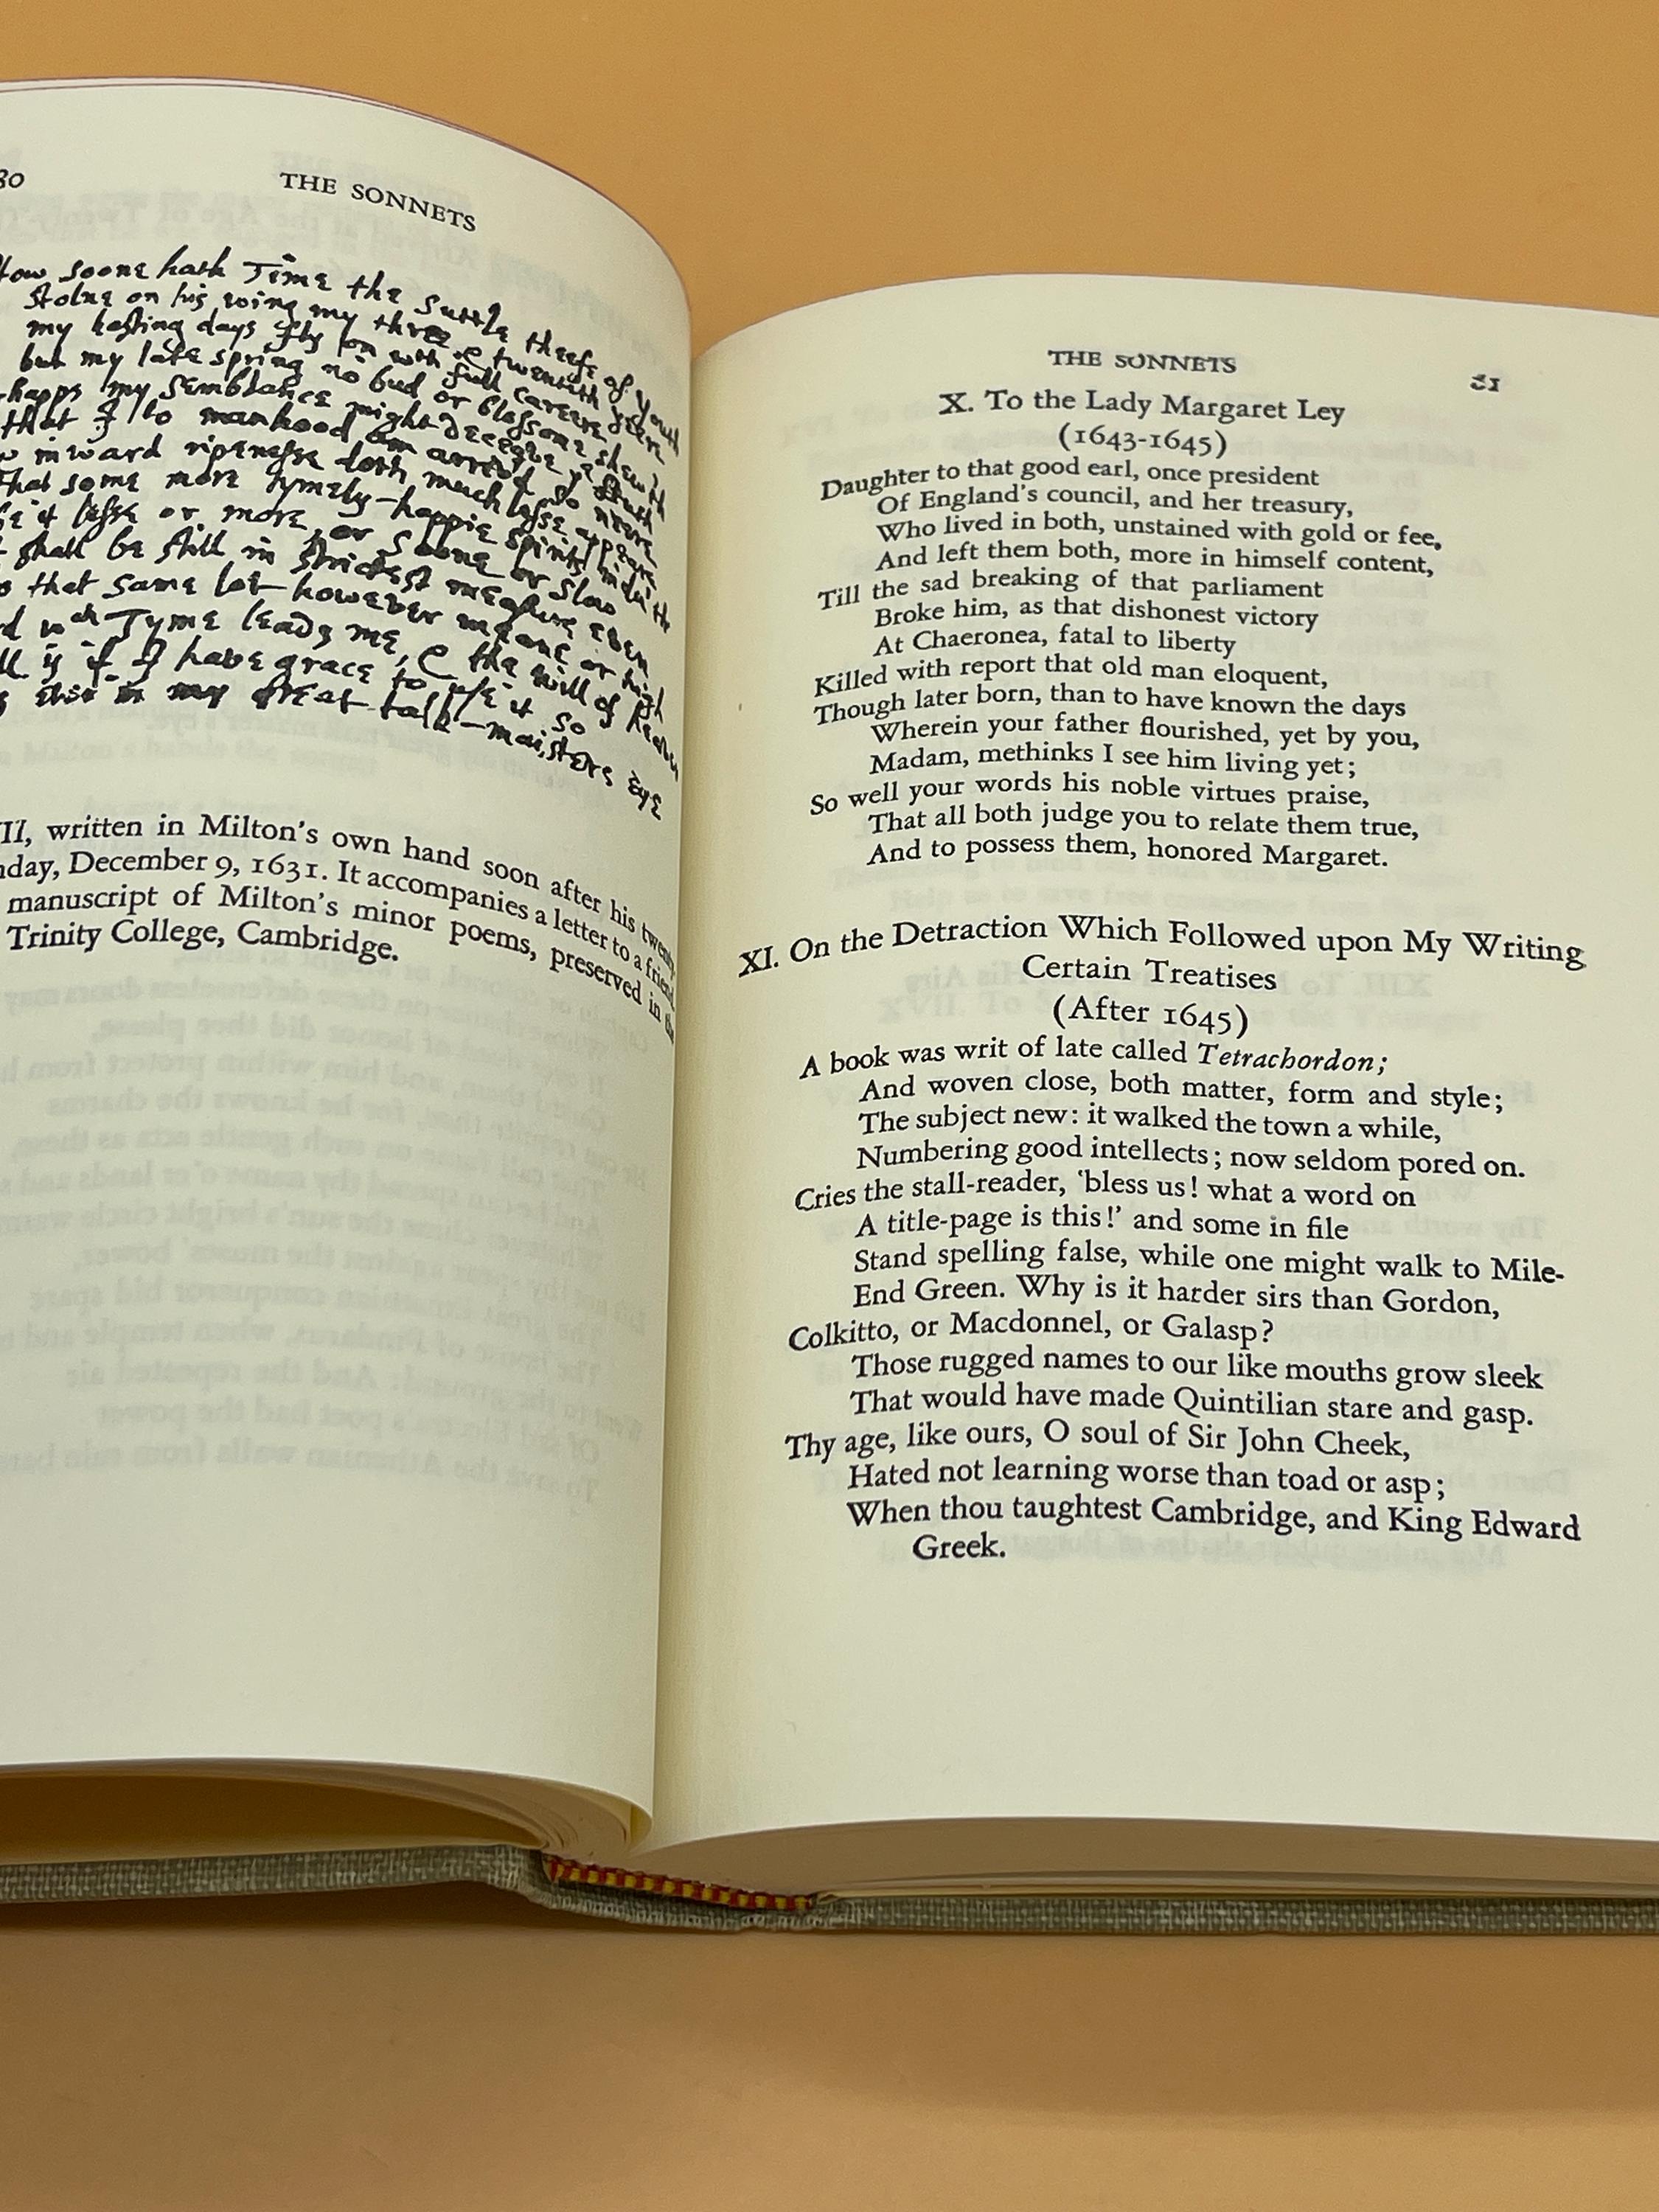 80 THE SONNETS
How soone hath Time the suttle theefe of youth
stolne on his wing my three & twentith yeere
my hasting days fly on with full careere
but my late spring no bud or blossome shew'th
my semblance might deceave ye truth
that I to manhood am arriv'd so neere
inward ripenesse doth much lesse appeare
That some more tymely-happie spirits indu'th
it lesse or more, or soone or slow
shall be still in strictest measure even
to that same lot however meane or high
wch Tyme leads me, & the will of Heaven
is if I have grace to use it so
ever in my great task-maisters eye
II, written in Milton's own hand soon after his twenty-
day, December 9, 1631. It accompanies a letter to a friend,
manuscript of Milton's minor poems, preserved in the
Trinity College, Cambridge.
THE SONNETS 81
X. To the Lady Margaret Ley
(1643-1645)
Daughter to that good earl, once president
Of England's council, and her treasury,
Who lived in both, unstained with gold or fee,
And left them both, more in himself content,
Till the sad breaking of that parliament
Broke him, as that dishonest victory
At Chaeronea, fatal to liberty
Killed with report that old man eloquent,
Though later born, than to have known the days
Wherein your father flourished, yet by you,
Madam, methinks I see him living yet;
So well your words his noble virtues praise,
That all both judge you to relate them true,
And to possess them, honored Margaret.
XI. On the Detraction Which Followed upon My Writing
Certain Treatises
(After 1645)
A book was writ of late called Tetrachordon;
And woven close, both matter, form and style;
The subject new: it walked the town a while,
Numbering good intellects; now seldom pored on.
Cries the stall-reader, 'bless us! what a word on
A title-page is this!' and some in file
Stand spelling false, while one might walk to Mile-
End Green. Why is it harder sirs than Gordon,
Colkitto, or Macdonnel, or Galasp?
Those rugged names to our like mouths grow sleek
That would have made Quintilian stare and gasp.
Thy age, like ours, O soul of Sir John Cheek,
Hated not learning worse than toad or asp;
When thou taughtest Cambridge, and King Edward
Greek.